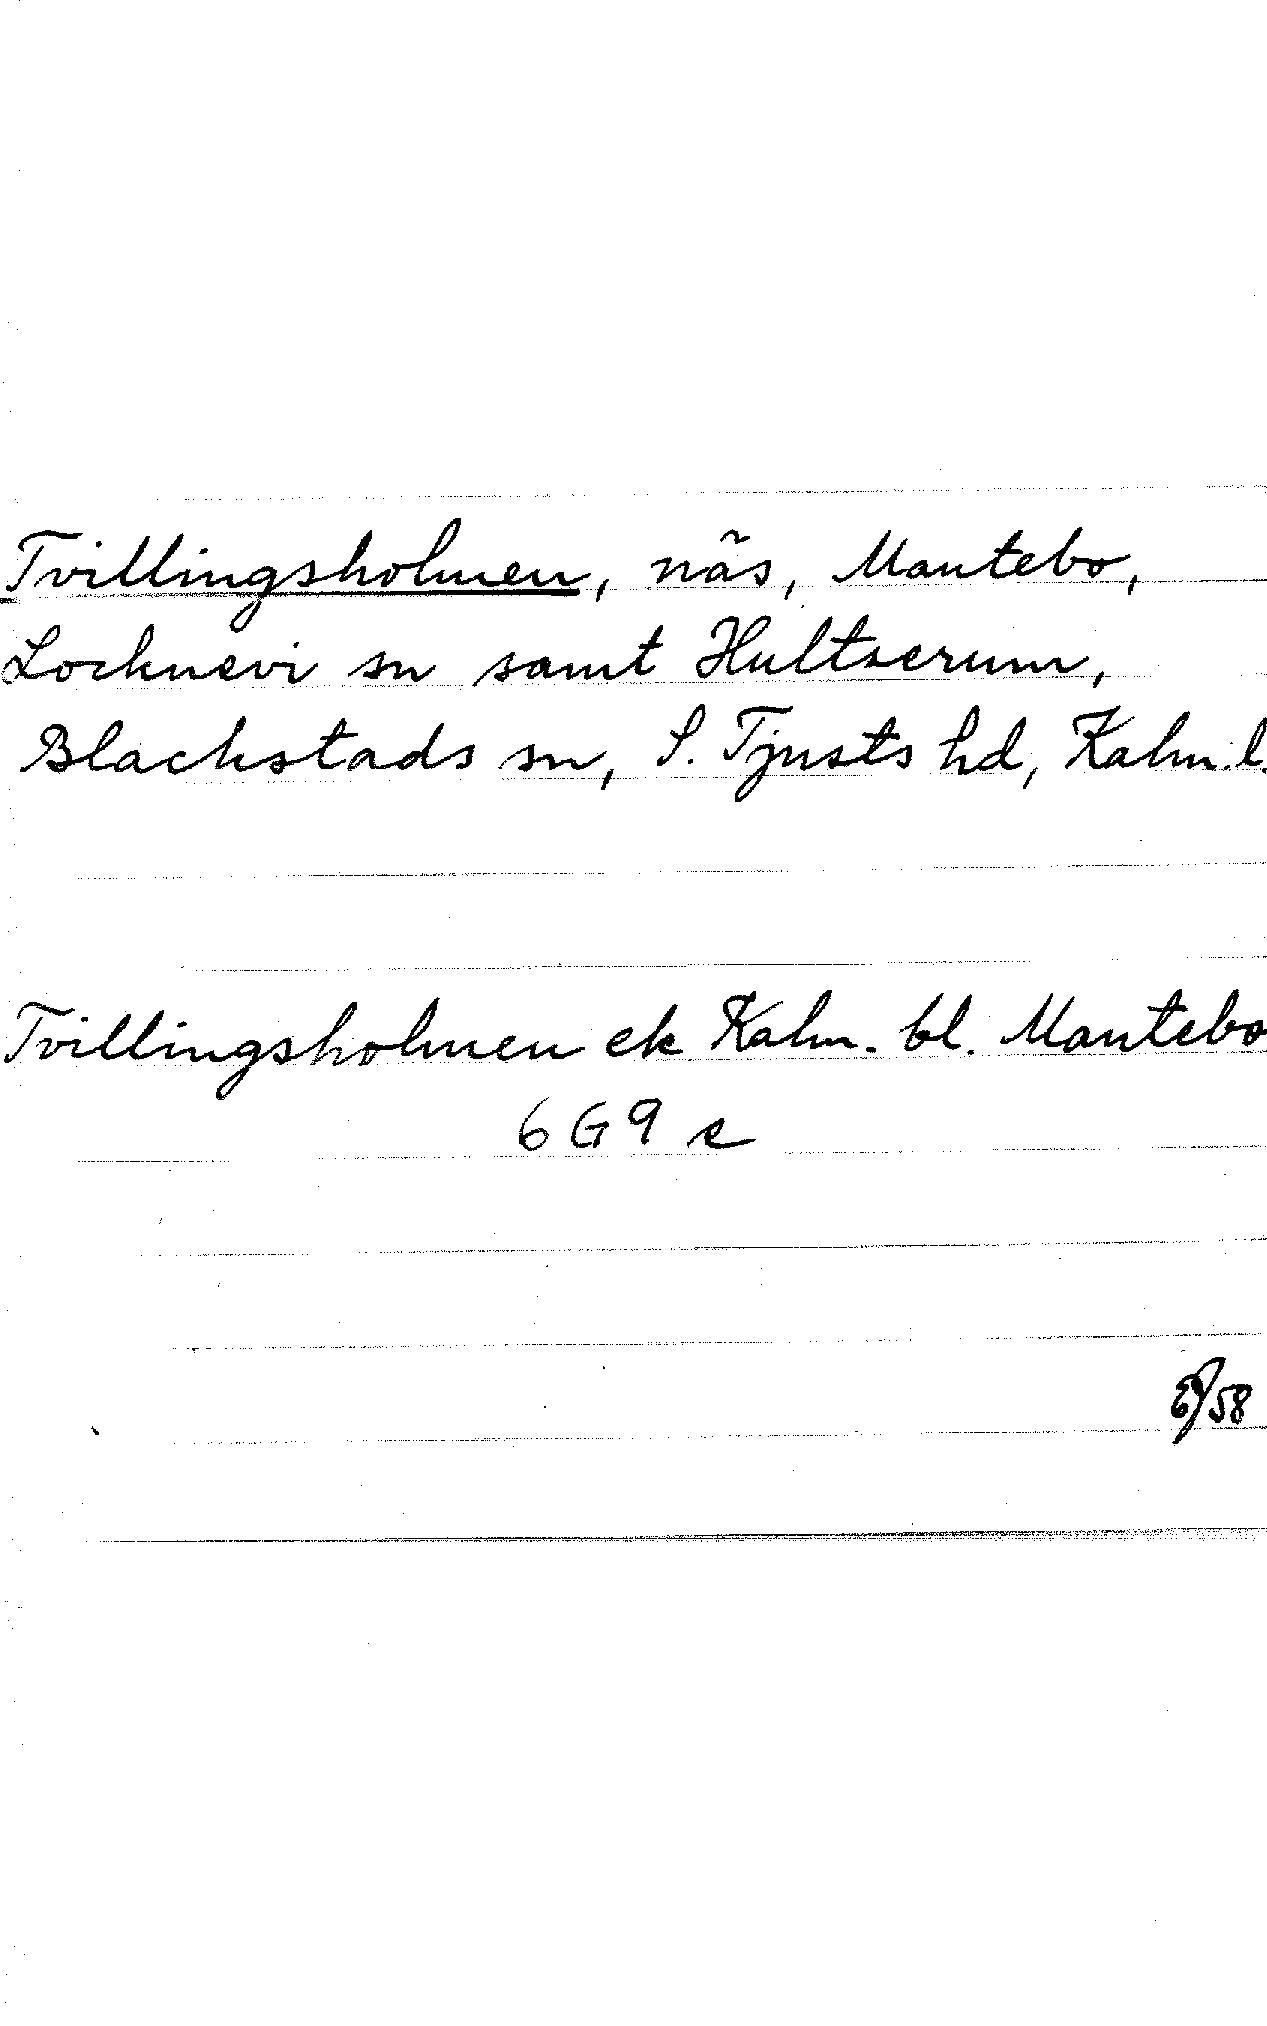 Tvillingsholmen, näs, Mantebo,
Locknevi sn samt Hultserum,
Blackstads sn, S. Tjusts hd, Kalm. l.
Tvillingsholmen ek Kalm. bl. Mantebo
6 G 9 e
58